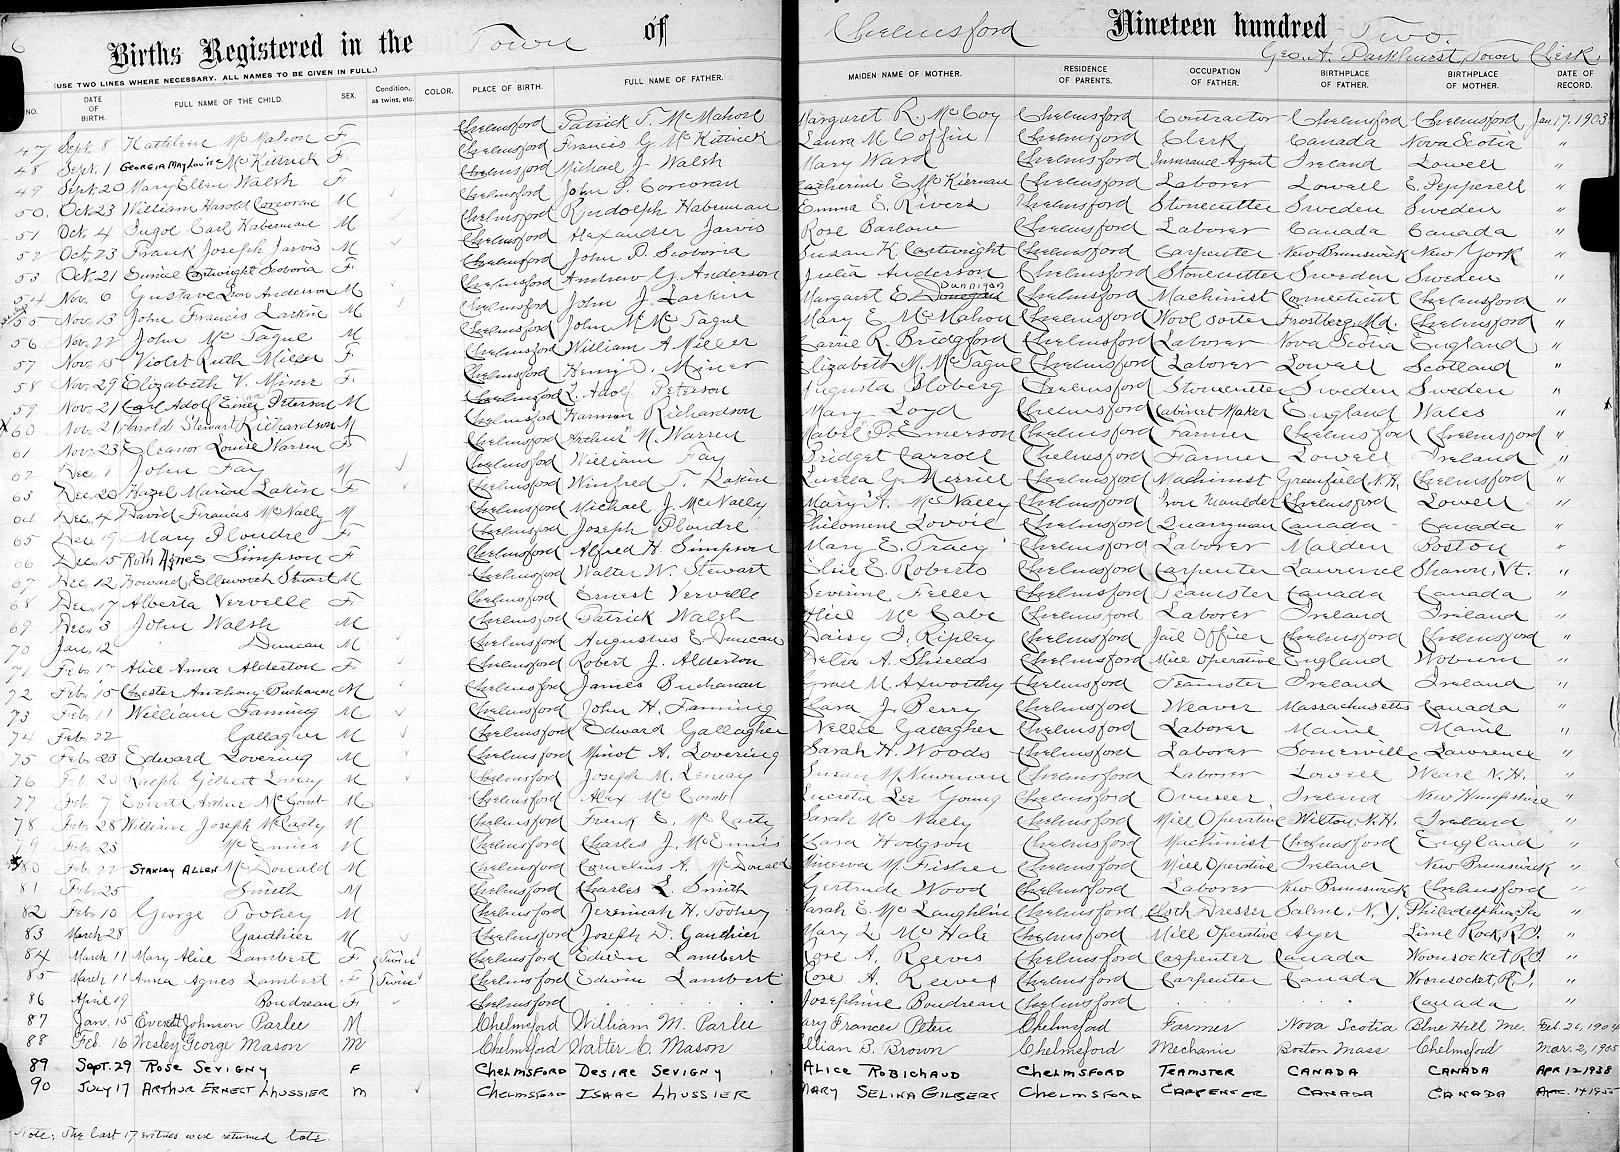 6
Births Registered in the Town of Chelmsford Nineteen hundred Two.
Geo. A. Parkhurst Town Clerk.
(USE TWO LINES WHERE NECESSARY. ALL NAMES TO BE GIVEN IN FULL.)
NO. DATE OF BIRTH. FULL NAME OF THE CHILD. SEX. Condition, as twins, etc. COLOR. PLACE OF BIRTH. FULL NAME OF FATHER. MAIDEN NAME OF MOTHER. RESIDENCE OF PARENTS. OCCUPATION OF FATHER. BIRTHPLACE OF FATHER. BIRTHPLACE OF MOTHER. DATE OF RECORD.
47 Sept. 8 Kathleen McMahon F Chelmsford Patrick T. McMahon Margaret R. McCoy Chelmsford Contractor Chelmsford Chelmsford Jan. 17. 1903
48 Sept. 1 Georgia May Louise McKittrick F Chelmsford Francis G. McKittrick Laura M Coffin Chelmsford Clerk Canada Nova Scotia "
49 Sept. 20 Mary Ellen Walsh F Chelmsford Michael J Walsh Mary Ward Chelmsford Insurance Agent Ireland Lowell "
50. Oct. 23 William Harold Corcoran M Chelmsford John P. Corcoran Catherine E. McKiernan Chelmsford Laborer Lowell E. Pepperell "
51 Oct. 4 Carl Haberman M Chelmsford Rudolph Haberman Emma E. Rivers Chelmsford Stonecutter Sweden Sweden "
52 Oct. 23 Frank Joseph Jarvis M Chelmsford Alexander Jarvis Rose Barlow Chelmsford Laborer Canada Canada "
53 Oct. 21 Eunice Cartwright Scoboria F Chelmsford John P. Scoboria Susan K. Cartwright Chelmsford Carpenter New Brunswick New York "
54 Nov. 6 Gustave Leon Anderson M Chelmsford Andrew G. Anderson Julia Anderson Chelmsford Stonecutter Sweden Sweden "
55 Nov. 13 John Francis Larkin M Chelmsford John J. Larkin Margaret E. Dunnigan Chelmsford Machinist Connecticut Chelmsford "
56 Nov. 22 John McTague M Chelmsford John M McTague Mary E. McMahon Chelmsford Wool Sorter Frostberg, Md. Chelmsford "
57 Nov. 15 Violet Ruth Miller F Chelmsford William A Miller Carrie R. Bridgford Chelmsford Laborer Nova Scotia England "
58 Nov. 29 Elizabeth V. Miner F Chelmsford Henry D. Miner Elizabeth M. McTague Chelmsford Laborer Lowell Scotland "
59 Nov. 21 Carl Adolf Einer Peterson M Chelmsford L. Adolf Peterson Augusta Bloberg Chelmsford Stonecutter Sweden Sweden "
60 Nov. 21 Harold Stewart Richardson M Chelmsford Harmon Richardson Mary Loyd Chelmsford Cabinet Maker England Wales "
61 Nov. 23 Eleanor Louise Warren F Chelmsford Arthur M. Warren Mabel P. Emerson Chelmsford Farmer Chelmsford Chelmsford "
62 Dec. 1 John Fay M Chelmsford William Fay Bridget Carroll Chelmsford Farmer Lowell Ireland "
63 Dec. 20 Hazel Marion Lakin F Chelmsford Winfred T. Lakin Luella G. Merrill Chelmsford Machinist Greenfield, N.H. Chelmsford "
64 Dec. 4 David Francis McNally M Chelmsford Michael J. McNally Mary A. McNally Chelmsford Iron Moulder Chelmsford Lowell "
65 Dec. 19 Mary Ploudre F Chelmsford Joseph Ploudre Philomene Chelmsford Quarryman Canada Canada "
66 Dec. 15 Ruth Agnes Simpson F Chelmsford Alfred H. Simpson Mary E. Tracy Chelmsford Laborer Malden Boston "
67 Dec. 12 Howard Ellsworth Stewart M Chelmsford Walter W. Stewart Elsie E. Roberts Chelmsford Carpenter Lawrence Sharon, Vt. "
68 Dec. 17 Alberta Vervelle F Chelmsford Ernest Vervelle Severine Feller Chelmsford Teamster Canada Canada "
69 Dec. 3 John Walsh M Chelmsford Patrick Walsh Alice McCabe Chelmsford Laborer Ireland Ireland "
70 Jan. 12 Duncan M Chelmsford Augustus E. Duncan Daisy I. Ripley Chelmsford Jail Officer Chelmsford Chelmsford "
71 Feb. 17 Alice Anna Alderton F Chelmsford Robert J. Alderton Delia A. Shields Chelmsford Mill Operative England Woburn "
72 Feb. 15 Chester Anthony Buchanan M Chelmsford James Buchanan Grace M. Axworthy Chelmsford Teamster Ireland Ireland "
73 Feb. 11 William Fanning M Chelmsford John H. Fanning Clara J. Perry Chelmsford Weaver Massachusetts Canada "
74 Feb. 22 Gallagher M Chelmsford Edward Gallagher Nellie Gallagher Chelmsford Laborer Maine Maine "
75 Feb. 23 Edward Lovering M Chelmsford Minot A. Lovering Sarah H. Woods Chelmsford Laborer Somerville Lawrence "
76 Feb. 20 Ralph Gilbert Lemay M Chelmsford Joseph M. Lemay Susan M. Newman Chelmsford Laborer Lowell Weare N.H. "
77 Feb. 7 Everett Arthur McComb M Chelmsford Alex McComb Lucretia Lee Young Chelmsford Overseer Ireland New Hampshire "
78 Feb. 28 William Joseph McCarty M Chelmsford Frank E. McCarty Sarah McNally Chelmsford Mill Operative Wilton, N.H. Ireland "
79 Feb. 23 McEnnis M Chelmsford Charles J. McEnnis Clara Hodgson Chelmsford Machinist Chelmsford England "
80 Feb. 22 Stanley Allen McDonald M Chelmsford Cornelius A. McDonald Minerva M. Fisher Chelmsford Mill Operative Ireland New Brunswick "
81 Feb. 25 Smith M Chelmsford Charles L. Smith Gertrude Wood Chelmsford Laborer New Brunswick Chelmsford "
82 Feb. 10 George Toohey M Chelmsford Jeremiah H. Toohey Sarah E. McLaughlin Chelmsford Cloth Dresser Salem, N.Y. Philadelphia, Pa "
83 March 28 Gauthier M Chelmsford Joseph D. Gauthier Mary L. McHale Chelmsford Mill Operative Ayer Lime Rock, R.I. "
84 March 11 Mary Alice Lambert F Twin Chelmsford Edwin Lambert Rose A. Reeves Chelmsford Carpenter Canada Woonsocket R.I. "
85 March 11 Anna Agnes Lambert F Twin Chelmsford Edwin Lambert Rose A. Reeves Chelmsford Carpenter Canada Woonsocket, R.I. "
86 April 19 Boudreau F Chelmsford Josephine Boudreau Chelmsford Canada "
87 Jan. 15 Everett Johnson Parlee M Chelmsford William M. Parlee Mary Frances Peters Chelmsford Farmer Nova Scotia Blue Hill Me. Feb. 26, 1904
88 Feb. 16 Wesley George Mason M Chelmsford Walter C. Mason Lillian B. Brown Chelmsford Mechanic Boston Mass Chelmsford Mar. 2, 1905
89 Sept. 29 Rose Sevigny F Chelmsford Desire Sevigny Alice Robichaud Chelmsford Teamster Canada Canada Apr 12 1938
90 July 17 Arthur Ernest Lhussier M Chelmsford Isaac Lhussier Mary Selina Gilbert Chelmsford Carpenter Canada Canada Apr. 14 1955
Note: The last 17 entries were returned late.